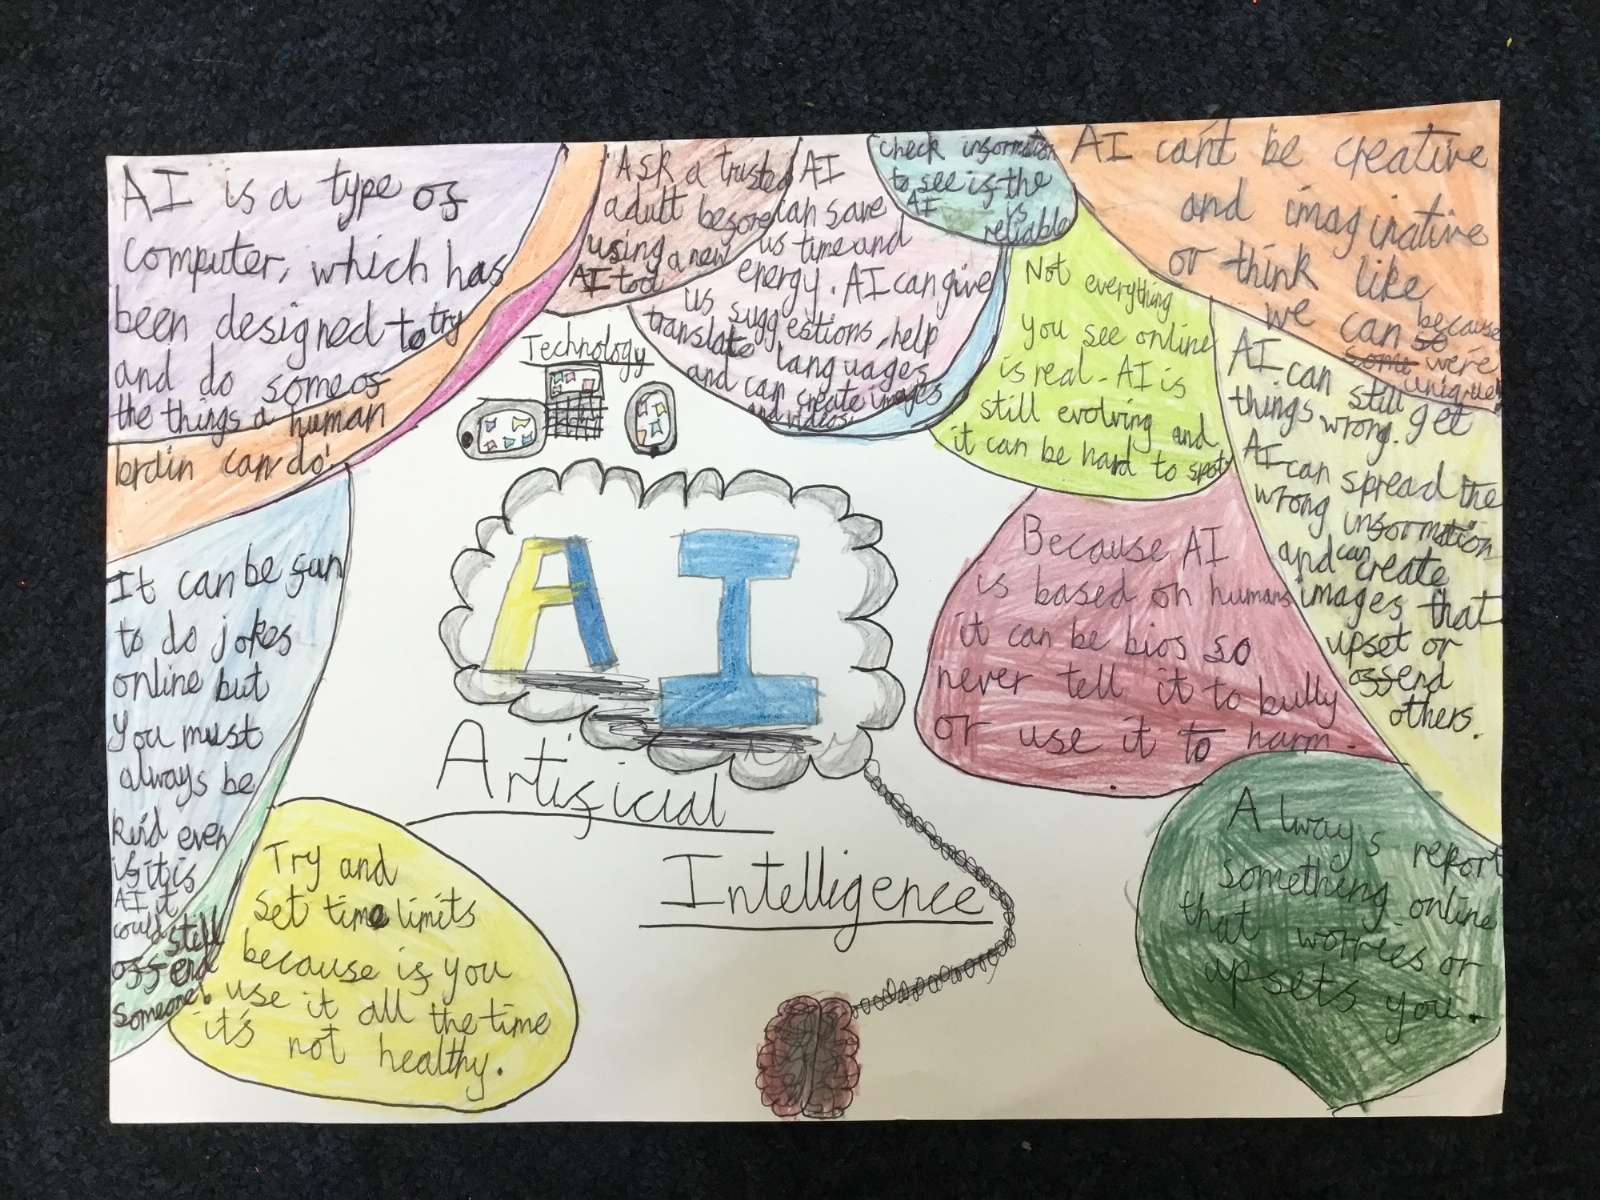 AI is a type of
computer, which has
been designed to try
and do some of
the things a human
brain can do!
Ask a trusted
adult before
using a new
AI tool
AI
can save
us time and
energy. AI can give
us suggestions, help
translate languages
and can create images
and videos.
Check information
to see if the
AI is
reliable
AI can't be creative
and imaginative
or think like
we can because
we're
unique
Not everything
you see online
is real - AI is
still evolving and
it can be hard to spot
AI can still get
things wrong.
AI can spread the
wrong information
and can create
images that
upset or
offend
others.
Technology
AI
Artificial
Intelligence
Because AI
is based on humans
it can be bios so
never tell it to bully
or use it to harm.
It can be fun
to do jokes
online but
you must
always be
kind even
if it is
AI it
could still
offend
someone!
Try and
set time limits
because if you
use it all the time
it's not healthy.
Always report
something online
that worries or
upsets you.